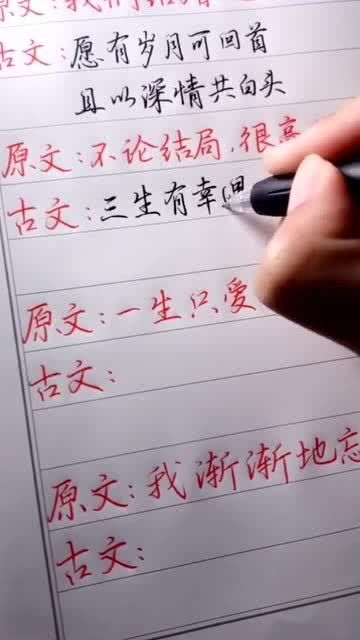 原文:我们
古文:愿有岁月可回首
且以深情共白头
原文:不论结局,很高
古文:三生有幸
原文:一生只爱
古文:
原文:我渐渐地忘
古文: